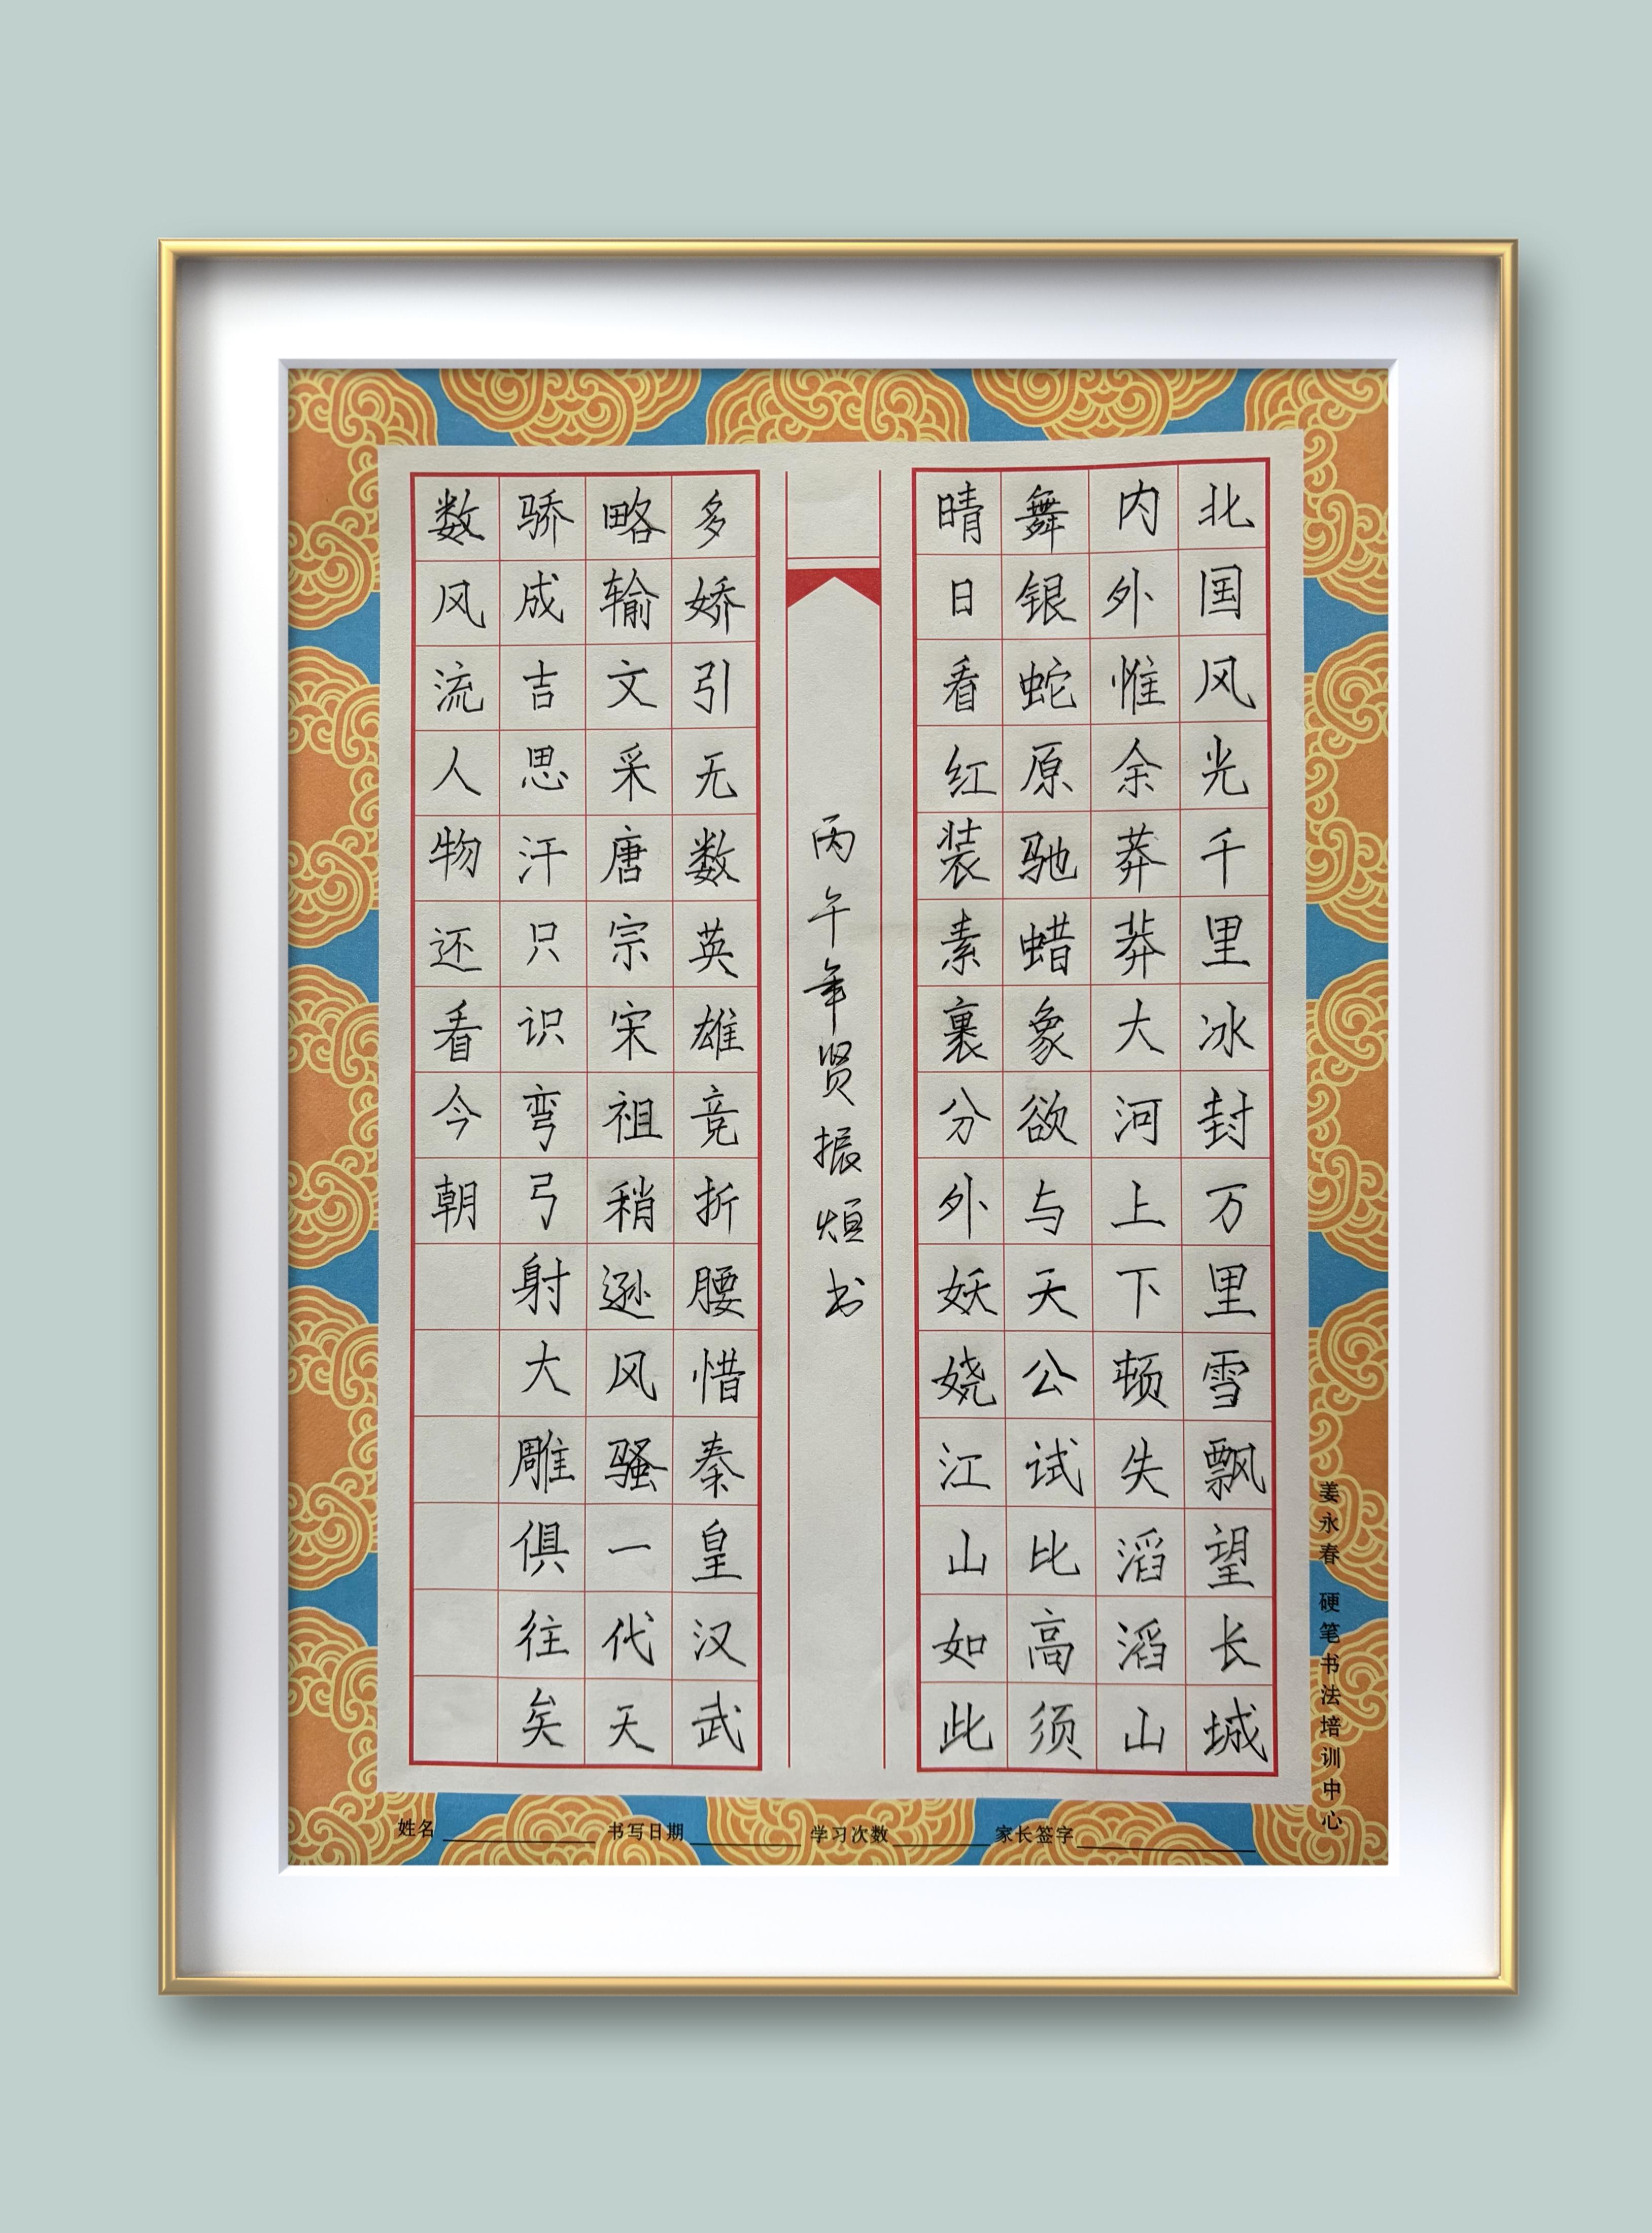 北国风光千里冰封万里雪飘望长城
内外惟余莽莽大河上下顿失滔滔山
舞银蛇原驰蜡象欲与天公试比高须
晴日看红装素裹分外妖娆江山如此
多娇引无数英雄竞折腰惜秦皇汉武
略输文采唐宗宋祖稍逊风骚一代天
骄成吉思汗只识弯弓射大雕俱往矣
数风流人物还看今朝
丙午年贤振烜书
姜永春 硬笔书法培训中心
姓名 书写日期 学习次数 家长签字